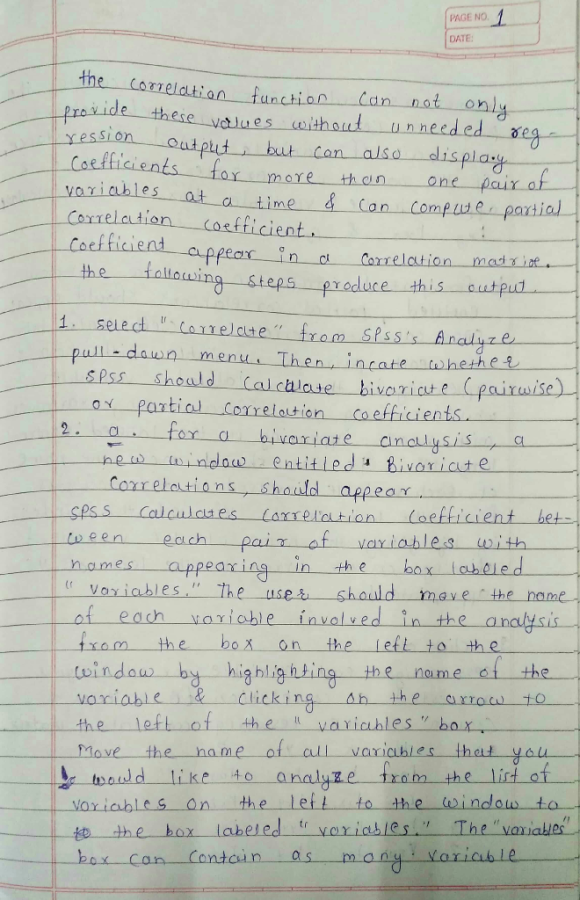 PAGE NO. 1
DATE:
the correlation function can not only
provide these values without unneeded reg-
ression output, but can also display
coefficients for more than one pair of
variables at a time & can compute partial
correlation coefficient.
Coefficient appear in a correlation matrix.
the following steps produce this output.
1. select "correlate" from SPSS's Analyze
pull-down menu. Then, incate whether
SPSS should calculate bivariate (pairwise)
or partial correlation coefficients.
2. a. for a bivariate analysis, a
new window entitled Bivariate
Correlations, should appear.
SPSS calculates correlation coefficient bet-
ween each pair of variables with
names appearing in the box labeled
"variables." The user should move the name
of each variable involved in the analysis
from the box on the left to the
window by highlighting the name of the
variable & clicking on the arrow to
the left of the "variables" box.
Move the name of all variables that you
would like to analyze from the list of
variables on the left to the window to
the box labeled "variables." The "variables"
box can contain as many variable